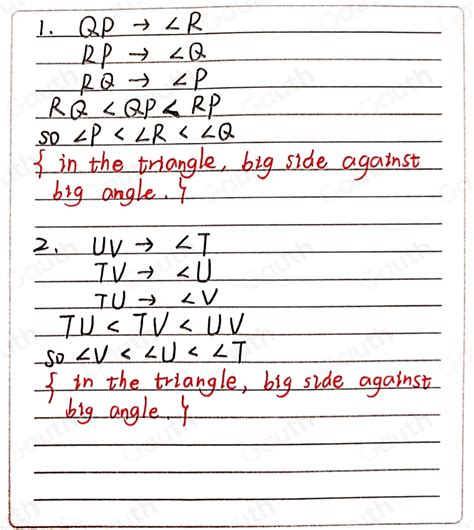 1. QP → ∠R
RP → ∠Q
RQ → ∠P
RQ < QP < RP
so ∠P < ∠R < ∠Q
{ in the triangle, big side against
big angle. }
2. UV → ∠T
TV → ∠U
TU → ∠V
TU < TV < UV
so ∠V < ∠U < ∠T
{ in the triangle, big side against
big angle. }